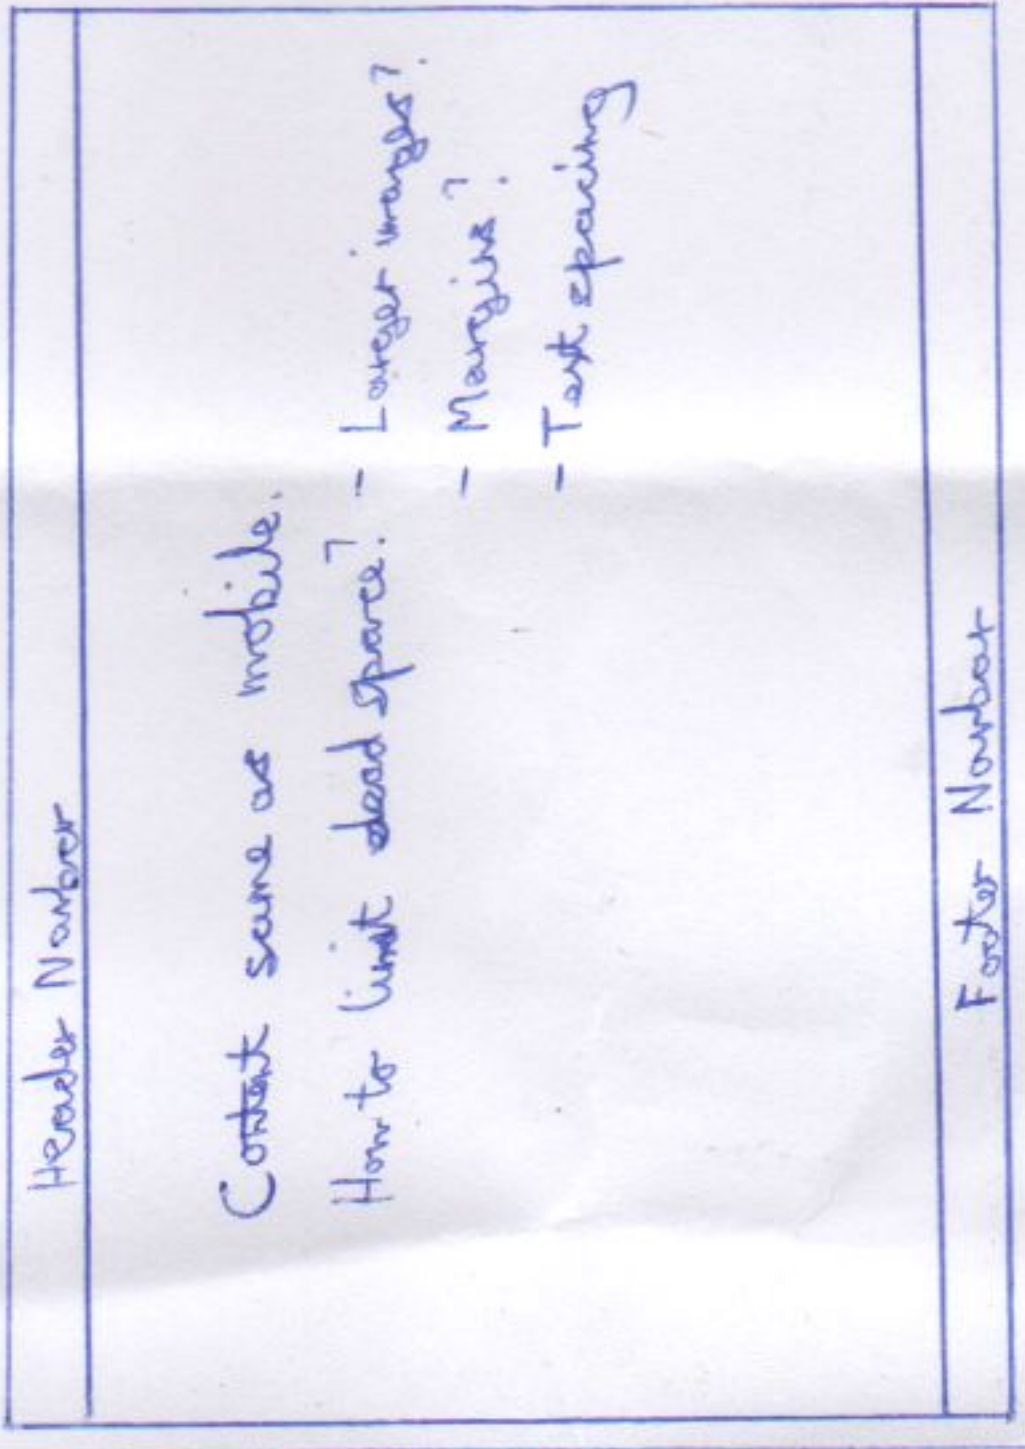 Header Navbar
Content same as mobile.
How to limit dead space? - Larger images?
- Margins?
- Text spacing
Footer Navbar